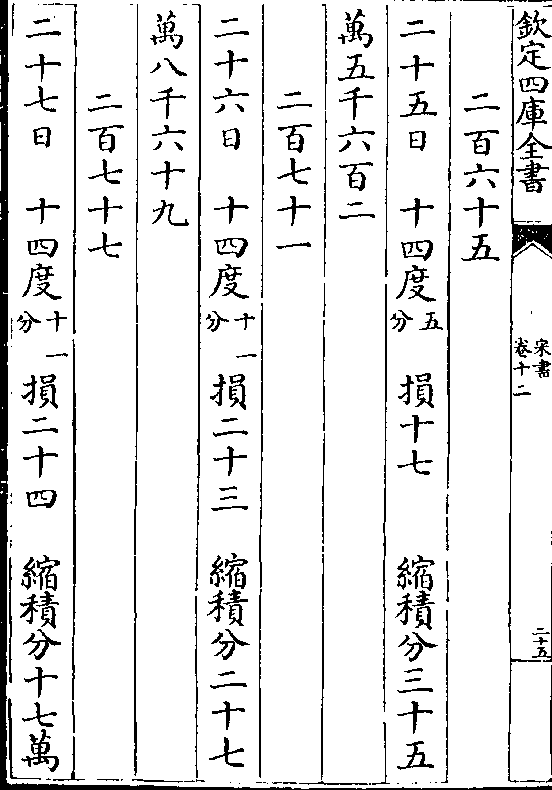 欽定四庫全書
宋書
卷十二
二十五
二百六十五
二十五日 十四度五分 損十七 縮積分三十五
萬五千六百二
二百七十一
二十六日 十四度十一分 損二十三 縮積分二十七
萬八千六十九
二百七十七
二十七日 十四度十一分 損二十四 縮積分十七萬